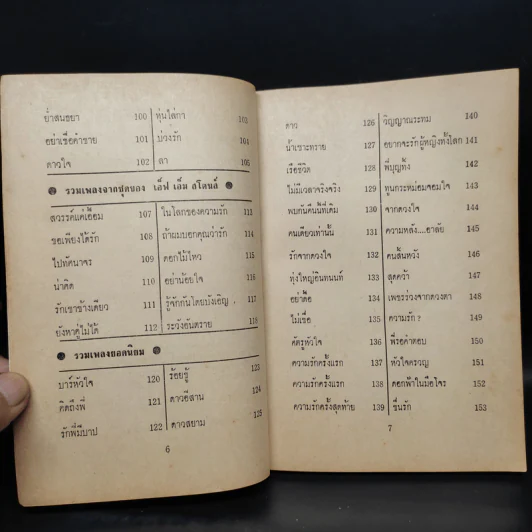 ย่ำสนธยา 100 หุ่นไล่กา 103
อย่าเชื่อคำชาย 101 บ่วงรัก 104
ดาวใจ 102 ลา 105
รวมเพลงจากชุดของ เอ็ฟ เอ็ม สโตนส์
สวรรค์แค่เอื้อม 107 ในโลกของความรัก 113
ขอเพียงได้รัก 108 ถ้าผมบอกคุณว่ารัก 114
ไปทัศนาจร 109 ดอกไม้ไหว 115
น่าคิด 110 อย่าน้อยใจ 116
รักเขาข้างเดียว 111 รู้จักกันโดยบังเอิญ 117
ยังหาคู่ไม่ได้ 112 ระวังอันตราย 118
รวมเพลงยอดนิยม
บาร์หัวใจ 120 ร้อยชู้ 123
คิดถึงพี่ 121 ดาวอีสาน 124
รักพี่มีบาป 122 ดาวสยาม 125
6
ดาว 126 วิญญาณระทม 140
น้ำเซาะทราย 127 อยากจะรักผู้หญิงทั้งโลก 141
เรือชีวิต 128 พี่บุญทิ้ง 142
ไม่มีเวลาจริงจริง 129 ทูนกระหม่อมจอมใจ 143
พบกันคืนนี้ที่เดิม 130 จากดวงใจ 144
คนเดียวเท่านั้น 131 ความหลัง....อาลัย 145
รักจากดวงใจ 132 คนสิ้นหวัง 146
ทุ่งใหญ่อินทนนท์ 133 สุดคว้า 147
อย่าดื้อ 134 เพชรร่วงจากดวงตา 148
ไม่เชื่อ 135 ความรัก ? 149
คัตรูหัวใจ 136 พี่รอคำตอบ 150
ความรักครั้งแรก 137 หัวใจครวญ 151
ความรักครั้งแรก 138 ดอกฟ้าในมือโจร 152
ความรักครั้งสุดท้าย 139 ชื่นรัก 153
7